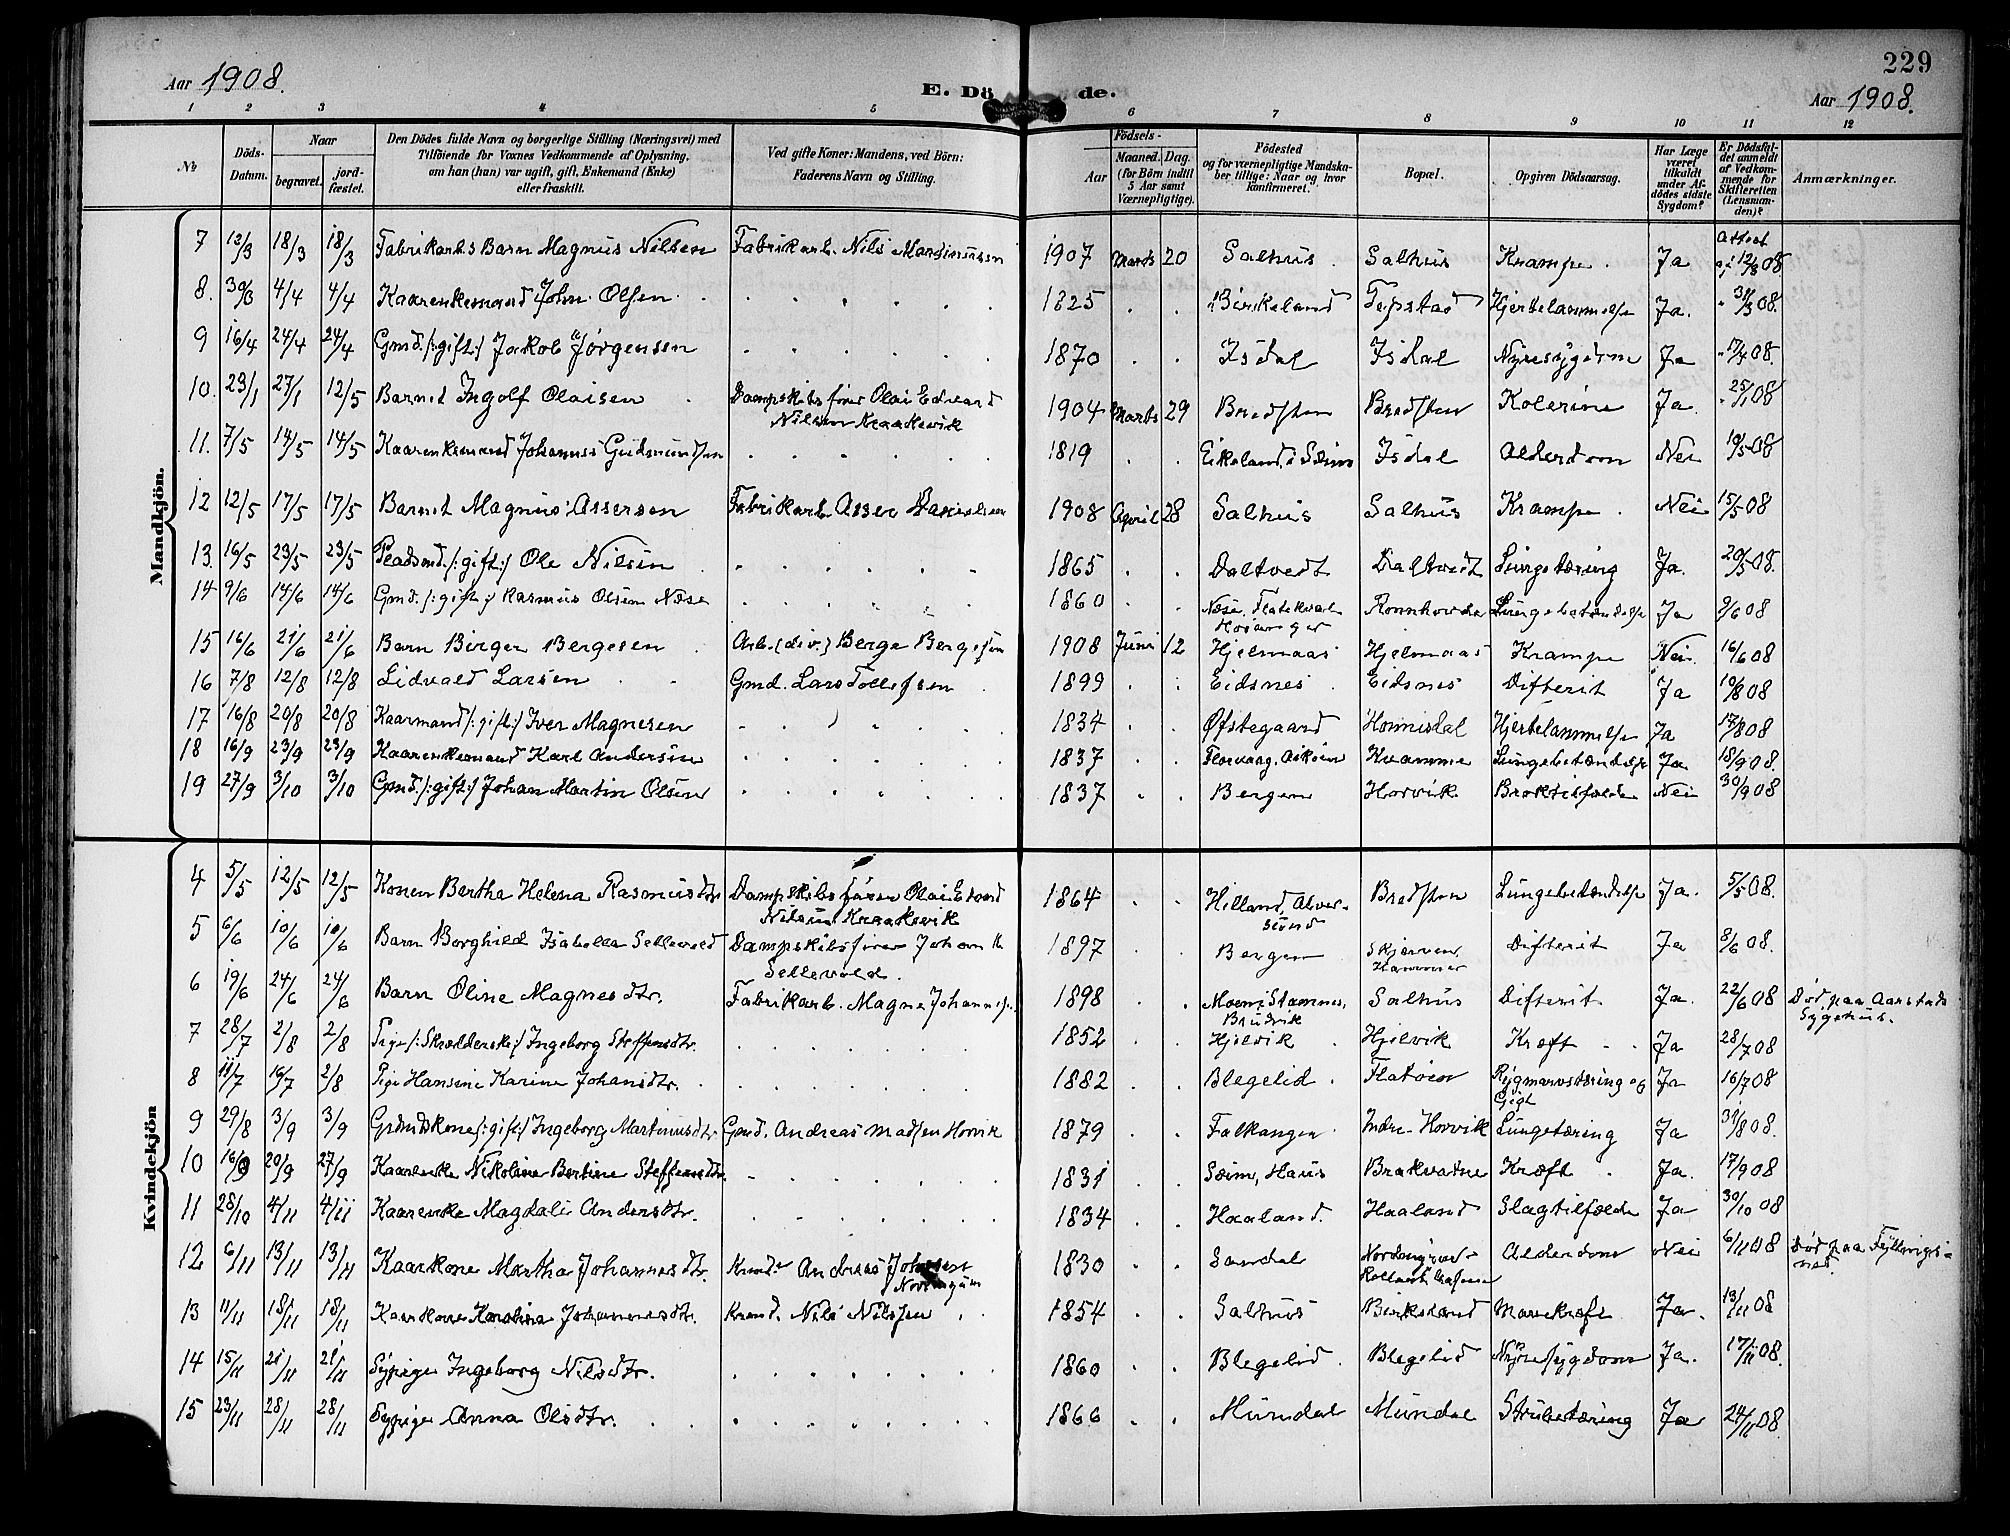 229
Aar 1908.
E. Dö de.
Aar 1908.
1 2 3 4 5 6 7 8 9 10 11 12
No
Döds-Datum.
Naar
begravet. jord-fæstet.
Den Dödes fulde Navn og borgerlige Stilling (Næringsvei) med
Tilföiende for Voxnes Vedkommende af Oplysning,
om han (hun) var ugift, gift, Enkemand (Enke)
eller fraskilt.
Ved gifte Koner: Mandens, ved Börn:
Faderens Navn og Stilling.
Födsels-
Aar Maaned. Dag.
(for Börn indtil
5 Aar samt
Værnepligtige).
Födested
og for værnepligtige Mandska-
ber tillige: Naar og hvor
konfirmeret.
Bopæl.
Opgiven Dödsaarsag.
Har Læge
været
tilkaldt
under Af-
dödes sidste
Sygdom?
Er Dödsfal-
det anmeldt
af Vedkom-
mende for
Skifteretten
(Lensman-
den)?
Anmærkninger.
Mandkjön.
7 12/3 18/3 18/3 Fabrikarbs Barn Magnus Nilsen Fabrikarb. Nils Mardinussen 1907 Marts 20 Salhus Salhus Krampe Ja Attest af 12/3 08
8. 30/3 4/4 4/4 Kaarenkemand John Olsen 1825 Birkeland Tepstad Hjertelammelse Ja. 31/3 08.
9 16/4 24/4 24/4 Gmd. /:gift:/ Jakob Jørgensen 1870 Isdal Isdal Nyresygdom Ja 17/4 08.
10. 23/1 27/1 12/5 Barnet Ingolf Olaisen Dampskibsfører Olai Edvard
Nilsen Kraakevik 1904 Marts 29 Bredsten Bredsten Kolerine Ja. 25/1 08
11. 7/5 14/5 14/5 Kaarenkemand Johannes Gudmundsen 1819 Eikeland i Sæim Isdal Alderdom Nei 10/5 08
12 12/5 17/5 17/5 Barnet Magnus Assersen Fabrikarb. Asser Danielsen 1908 April 28 Salhus Salhus Krampe Nei 15/5 08
13. 16/5 23/5 23/5 Pladsmd. /:gift:/ Ole Nilsen 1865 Daltvedt Daltvedt Lungetæring Ja. 20/5 08.
14 9/6 14/6 14/6 Gmd. /:gift:/ Rasmus Olsen Nese 1860 Nese, Flatekval
Hosanger Ronnhovde Lungebetændelse Ja 9/6 08
15 16/6 21/6 21/6 Barn Birger Bergesen Arb. (div.) Berge Bergesen 1908 Juni 12 Hjelmaas Hjelmaas Krampe Nei. 16/6 08
16 7/8 12/8 12/8 Lidvald Larsen Gmd. Lars Tollefsen 1899 Eidsnes Eidsnes Difterit Ja 10/8 08
17 16/8 20/8 20/8 Kaarmand /:gift:/ Iver Magnesen 1834 Øfstegaard Honnisdal Hjertelammelse Ja 17/8 08
18 16/9 23/9 23/9 Kaarenkemand Karl Andersen 1837 Florvaag, Askøen Kvamme Lungebetændelse Ja 18/9 08.
19 27/9 3/10 3/10 Gmd. /:gift:/ Johan Martin Olsen 1837 Bergen Horvik Broktilfælde Nei 30/9 08
Kvindekjön
4 5/5 12/5 12/5 Konen Bertha Helena Rasmusdtr. Dampskibsfører Olai Edvard
Nilsen Kraakevik 1864 Hilland, Alver-
sund Bredsten Lungebetændelse Ja. 5/5 08.
5 6/6 10/6 10/6 Barn Borghild Isabella Sellevold Dampskibsfører Johan
Sellevold. 1897 Bergen Skjærven
Hammer Difterit Ja 8/6 08.
6 19/6 24/6 24/6 Barn Oline Magnesdtr. Fabrikarb. Magne Johannes. 1898 Moen i Stamnes,
Brudvik Salhus Difterit Ja. 22/6 08 Død paa Aarstads
Sygehus.
7 28/7 2/8 2/8 Pige /:Skredderske:/ Ingeborg Steffensdtr. 1852 Hjelvik Hjelvik Kræft Ja 28/7 08
8 11/7 16/7 2/8 Pige Hansine Karine Johansdtr. 1882 Blegelid Flatøen Rygmarvstæring og
Gigt Ja 16/7 08
9 29/8 3/9 3/9 Grdmdskone /:gift:/ Ingeborg Martinusdtr Gmd. Andreas Madsen Horvik 1879 Falkanger Indre-Horvik Lungetæring Ja 31/8 08.
10 16/9 20/9 27/9 Kaarenke Nikoline Bertine Steffensdtr. 1831 Sæim, Haus Brakvatne Kræft Ja. 17/9 08
11 28/10 4/11 4/11 Kaarenke Magdali Andersdtr. 1834 Haaland. Haaland Slagtilfælde Ja 30/10 08
12 6/11 13/11 13/11 Kaarkone Martha Johannesdtr. Kmd. Andreas Johnsen 1830 Sandal Alderdom Nei 6/11 08 Død paa Fyllingsnes.
13 11/11 18/11 18/11 Kaarkone Karolina Johannesdtr. Kmd. Nils Nilssen 1854 Salhus Birkeland Mavekræft Ja. 13/11 08
14 15/11 21/11 21/11 Sypige Ingeborg Nilsdtr. 1860 Blegelid Blegelid Nyresygdom Ja. 17/11 08.
15 23/11 28/11 28/11 Sypige Anna Olsdtr. 1866 Mundal Mundal Strubetæring Ja 24/11 08.